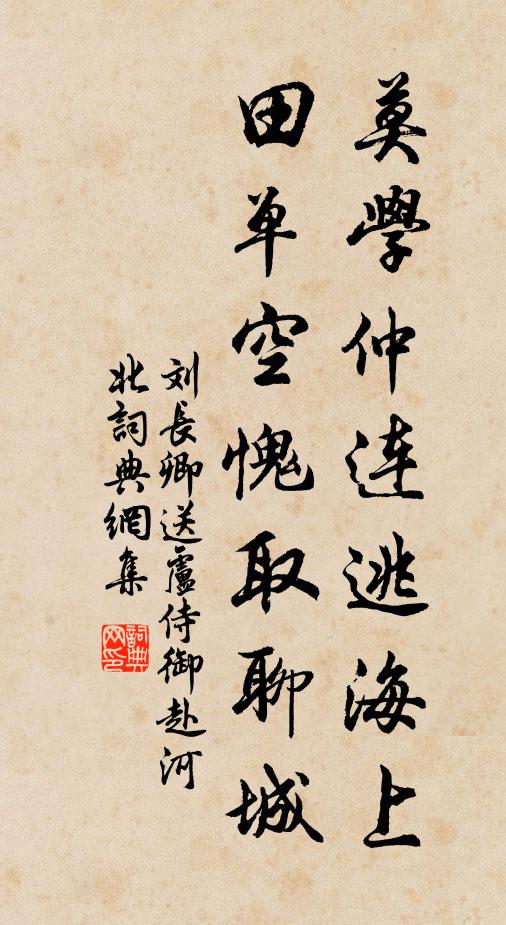 莫學仲连逃海上
田单空愧取聊城
刘長卿送盧侍御赴河
北詞典網集
詞典
网印